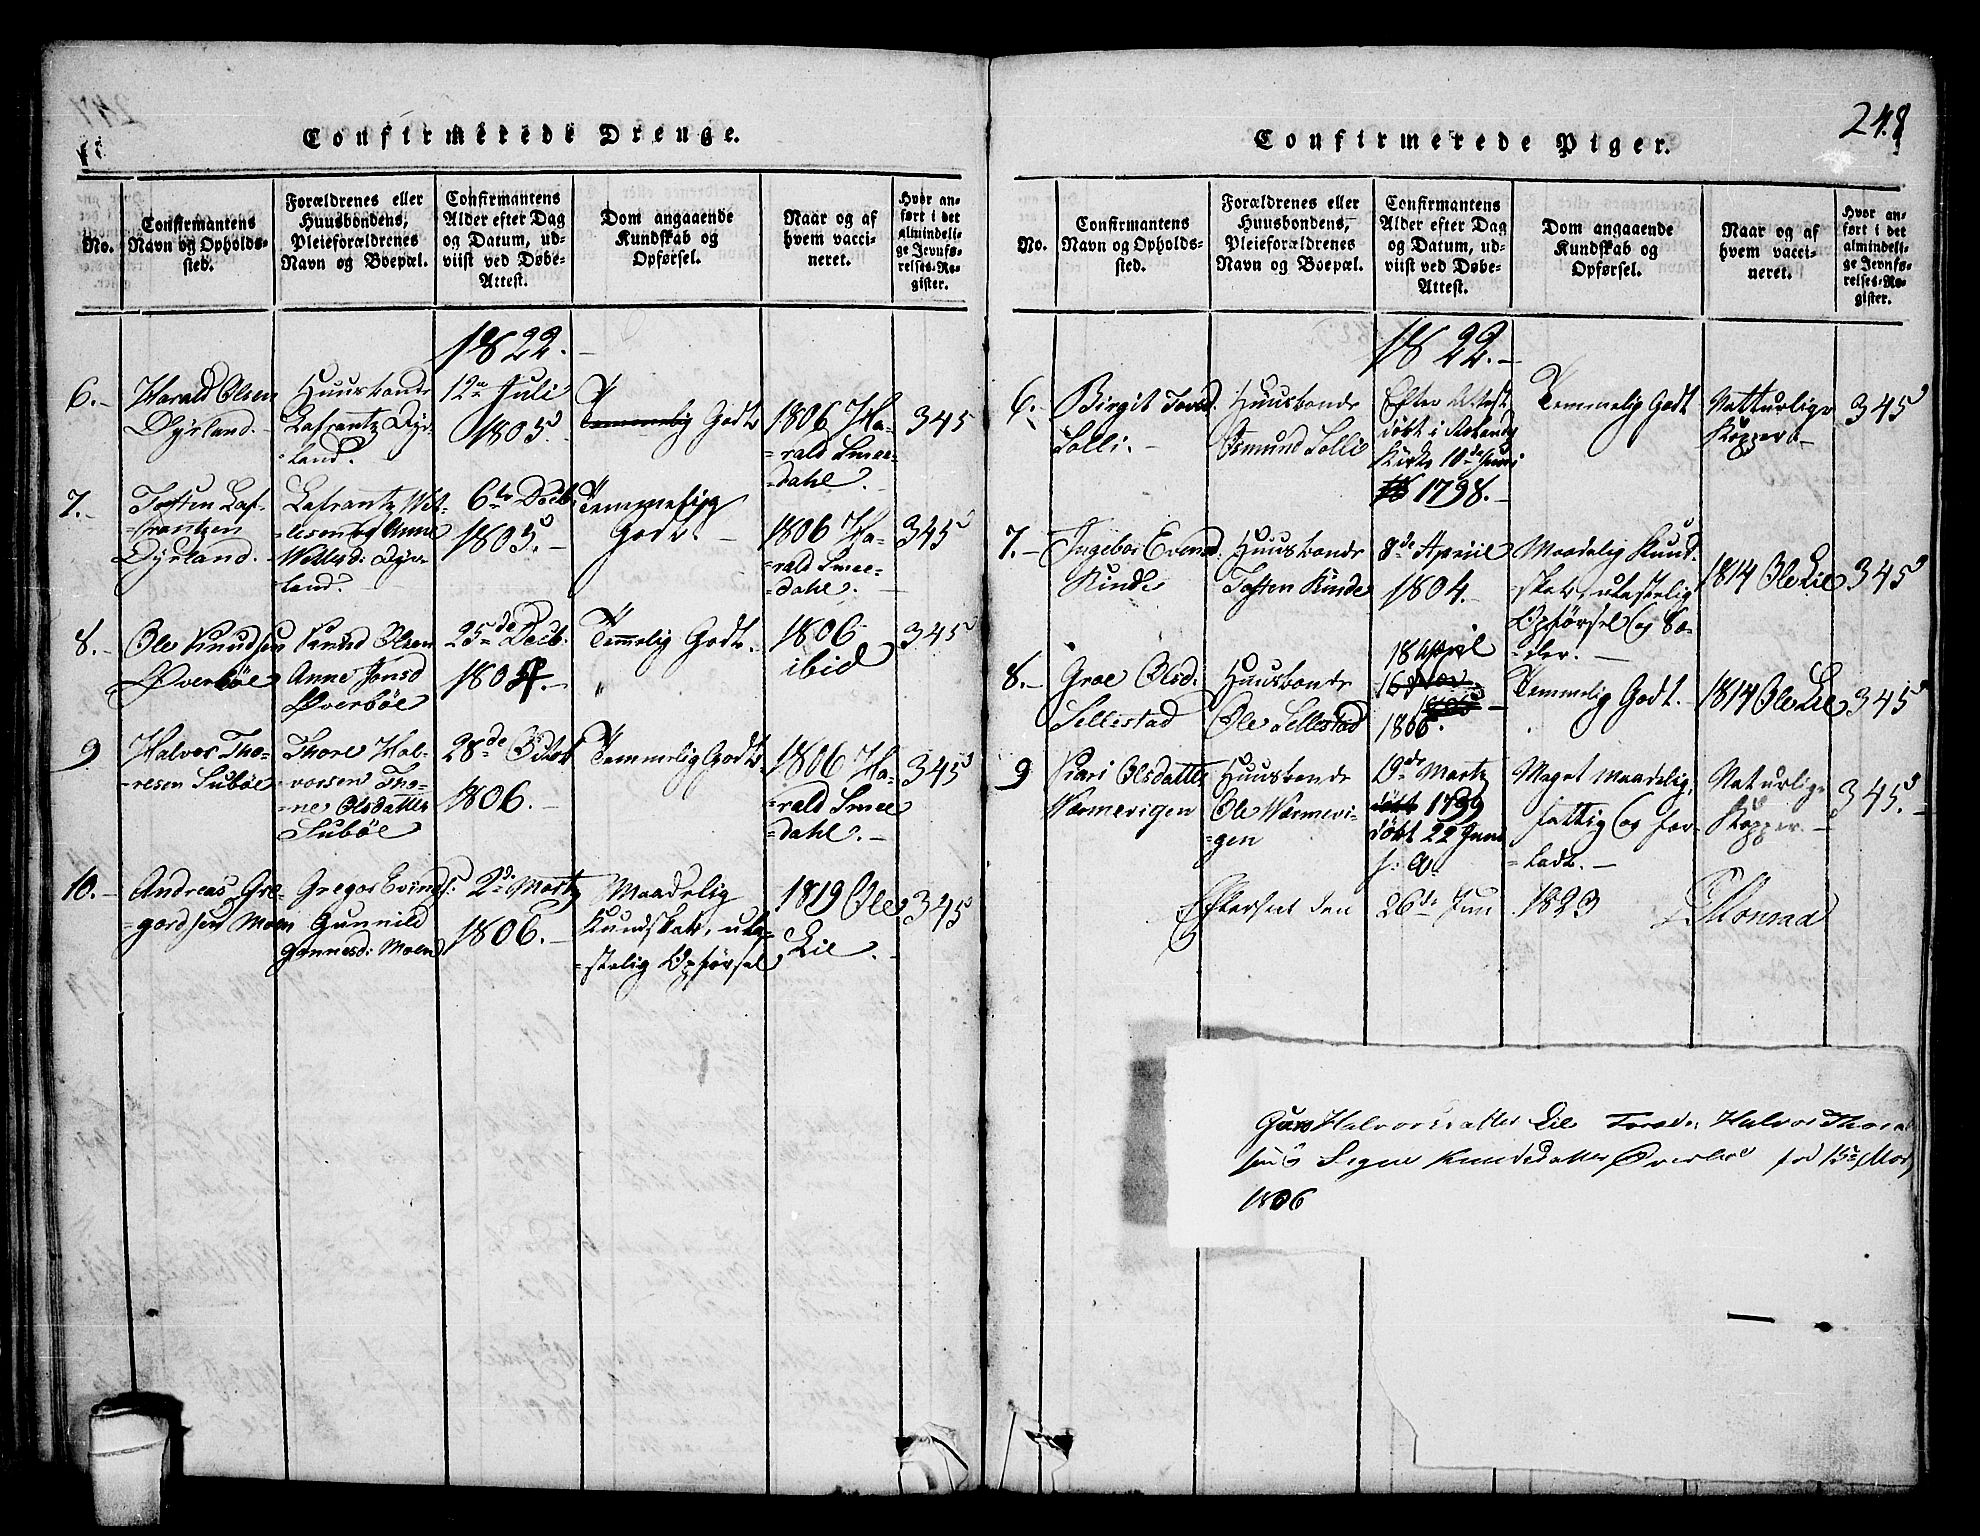 Confirmerede Drenge.
No.
Confirmantens
Navn og Opholds-
sted.
Forældrenes eller
Huusbondens,
Pleieforældrenes
Navn og Boepæl.
Confirmantens
Alder efter Dag
og Datum, ud-
viist ved Døbe-
Attest.
Dom angaaende
Kundskab og
Opførsel.
Naar og af
hvem vacci-
neret.
Hvor an-
ført i det
almindeli-
ge Jevnfø-
relses-Re-
gister.
1822.
6.
Harald Olsen
Dyrland.
Huusbonde
Lafrantz Dyr-
land.
12te Juli
1805.
Temmelig Godt
1806 Ha-
rald Smee-
dahl.
345
7.
Tosten Laf-
frantzen
Dyrland.
Lafrantz
og Anne
Dyr-
land.
6te Decb.
1805.
Temmelig
Godt.
1806 Ha-
rald Smee-
dahl.
345
8.
Ole Knudsen
Øverbøe
Knud Olsen
Anne Jonsd
Øverbøe
25de Decb.
Temmelig Godt.
1806
ibid
345
9
Halvor Tho-
resen Subøe
Thore Hal-
vorsen Tho-
ne Olsdatter
Subøe
28de
1806.
Temmelig Godt.
1806 Ha-
rald Smee-
dahl.
345
10.
Andreas Gre-
gordsen Moen
Gregor Evinds:
Gunnild
Moen
2de Martz
1806.
Maadelig
Kundskab, ula-
stelig Opførsel
1819 Ole
Lie.
345
248
Confirmerede Piger.
No.
Confirmantens
Navn og Opholds-
sted.
Forældrenes eller
Huusbondens,
Pleieforældrenes
Navn og Boepæl.
Confirmantens
Alder efter Dag
og Datum, ud-
viist ved Døbe-
Attest.
Dom angaaende
Kundskab og
Opførsel.
Naar og af
hvem vacci-
neret.
Hvor an-
ført i det
almindeli-
ge Jevnfø-
relses-Re-
gister.
1822.
6.
Birgit
Solli.
Huusbonde
Osmund Solli
Efter Attest
døbt i
Kirke 10de Juni
1798.
Temmelig Godt
Natturlige
Kopper
345
7.
Ingebor Evensd.
Kinde
Huusbonde
Tosten Kinde
8de Apriil
1804.
Maadelig Kund-
skab, ulastelig
Opførsel og Sæ-
der.
1814 Ole Lie
345
8.
Groe Olsd.
Sellestad
Huusbonde
Ole Sellestad
18 April
1806.
Temmelig Godt.
1814 Ole Lie
345
9
Kari Olsdatter
Warmevigen
Huusbonde
Ole Warmevi-
gen
19de Martz
døbt 1799
døbt 22
s: A.
Meget maadelig,
fattig og for-
ladt.
Naturlige
Kopper.
345.
Efterseet den 26de Jun 1823 Monrad
Halvorsdatter Lie Forældr. Halvor Thor
Signe Knudsdatter Øverbøe fød 15de
1806